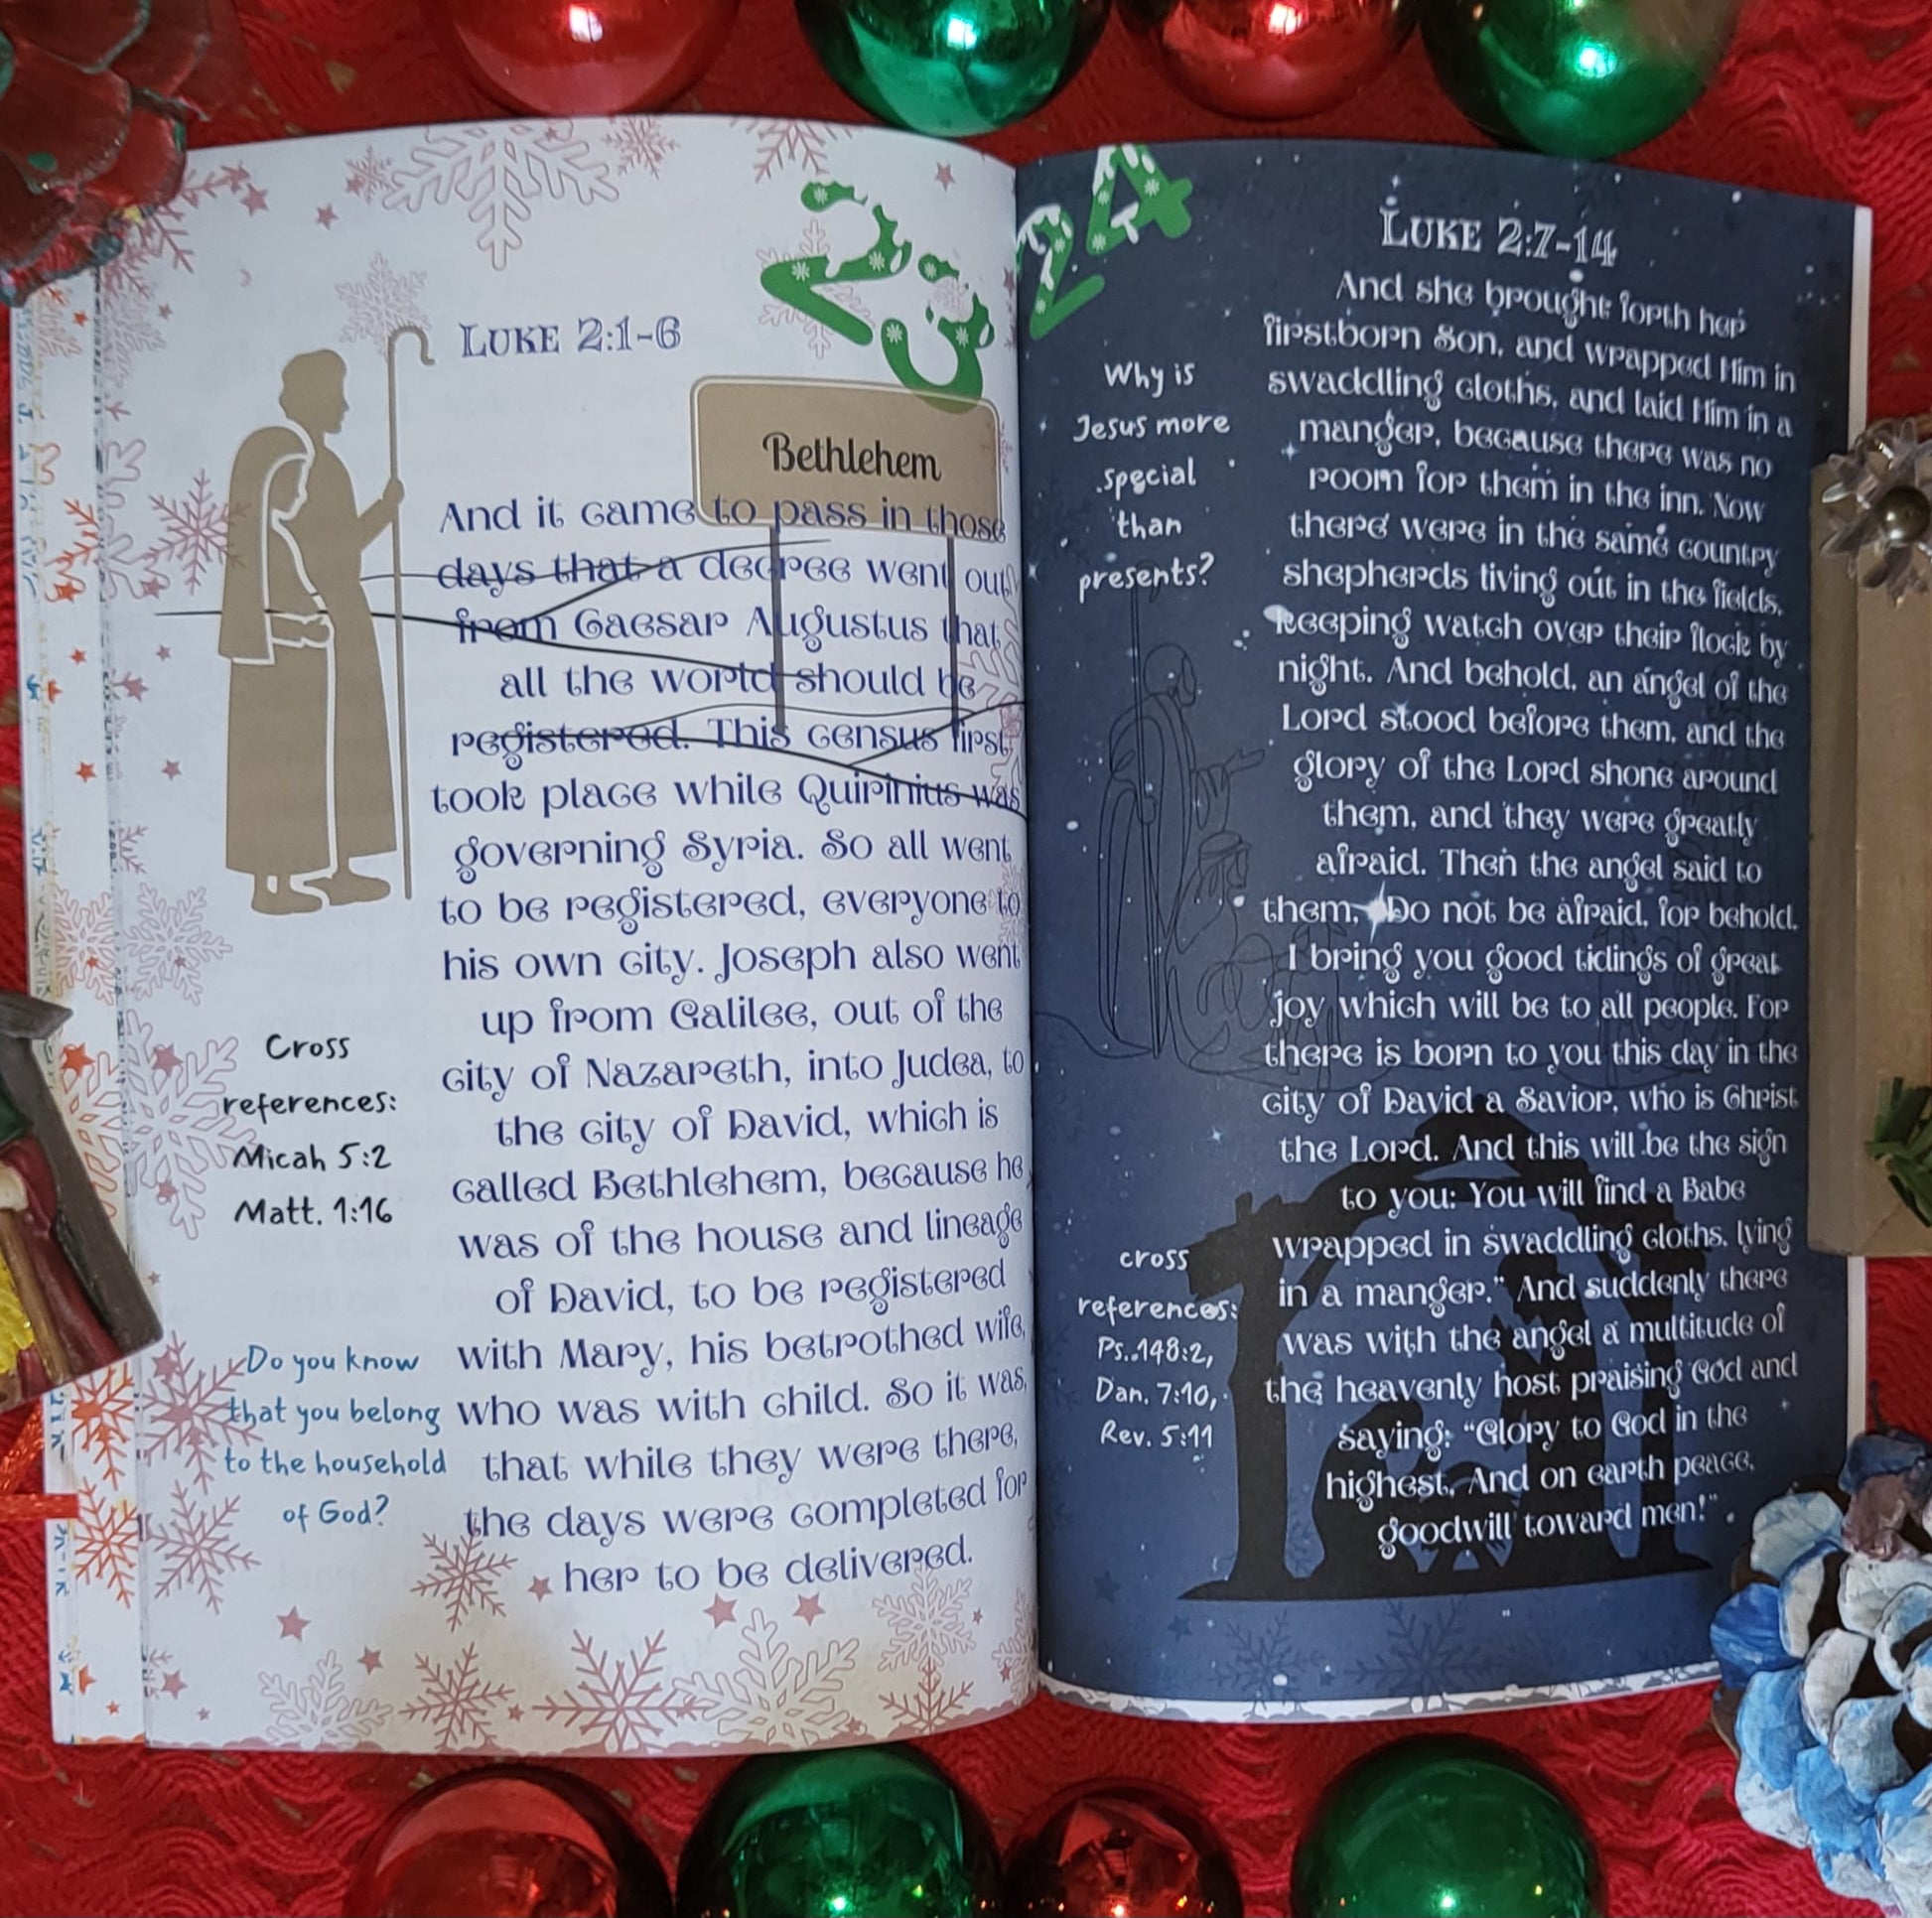 23
LUKE 2:1-6
Bethlehem
And it came to pass in those
days that a decree went out
from Caesar Augustus that
all the world should be
registered. This census first
took place while Quirinius was
governing Syria. So all went
to be registered, everyone to
his own city. Joseph also went
up from Galilee, out of the
city of Nazareth, into Judea, to
the city of David, which is
called Bethlehem, because he
was of the house and lineage
of David, to be registered
with Mary, his betrothed wife,
who was with child. So it was,
that while they were there,
the days were completed for
her to be delivered.
Cross
references:
Micah 5:2
Matt. 1:16
Do you know
that you belong
to the household
of God?
24
LUKE 2:7-14
And she brought forth her
firstborn Son, and wrapped Him in
swaddling cloths, and laid Him in a
manger, because there was no
room for them in the inn. Now
there were in the same country
shepherds living out in the fields,
keeping watch over their flock by
night. And behold, an angel of the
Lord stood before them, and the
glory of the Lord shone around
them, and they were greatly
afraid. Then the angel said to
them, "Do not be afraid, for behold,
I bring you good tidings of great
joy which will be to all people. For
there is born to you this day in the
city of David a Savior, who is Christ
the Lord. And this will be the sign
to you: You will find a Babe
wrapped in swaddling cloths, lying
in a manger." And suddenly there
was with the angel a multitude of
the heavenly host praising God and
saying: "Glory to God in the
highest, And on earth peace,
goodwill toward men!"
Why is
Jesus more
special
than
presents?
cross
references:
Ps. 148:2,
Dan. 7:10,
Rev. 5:11